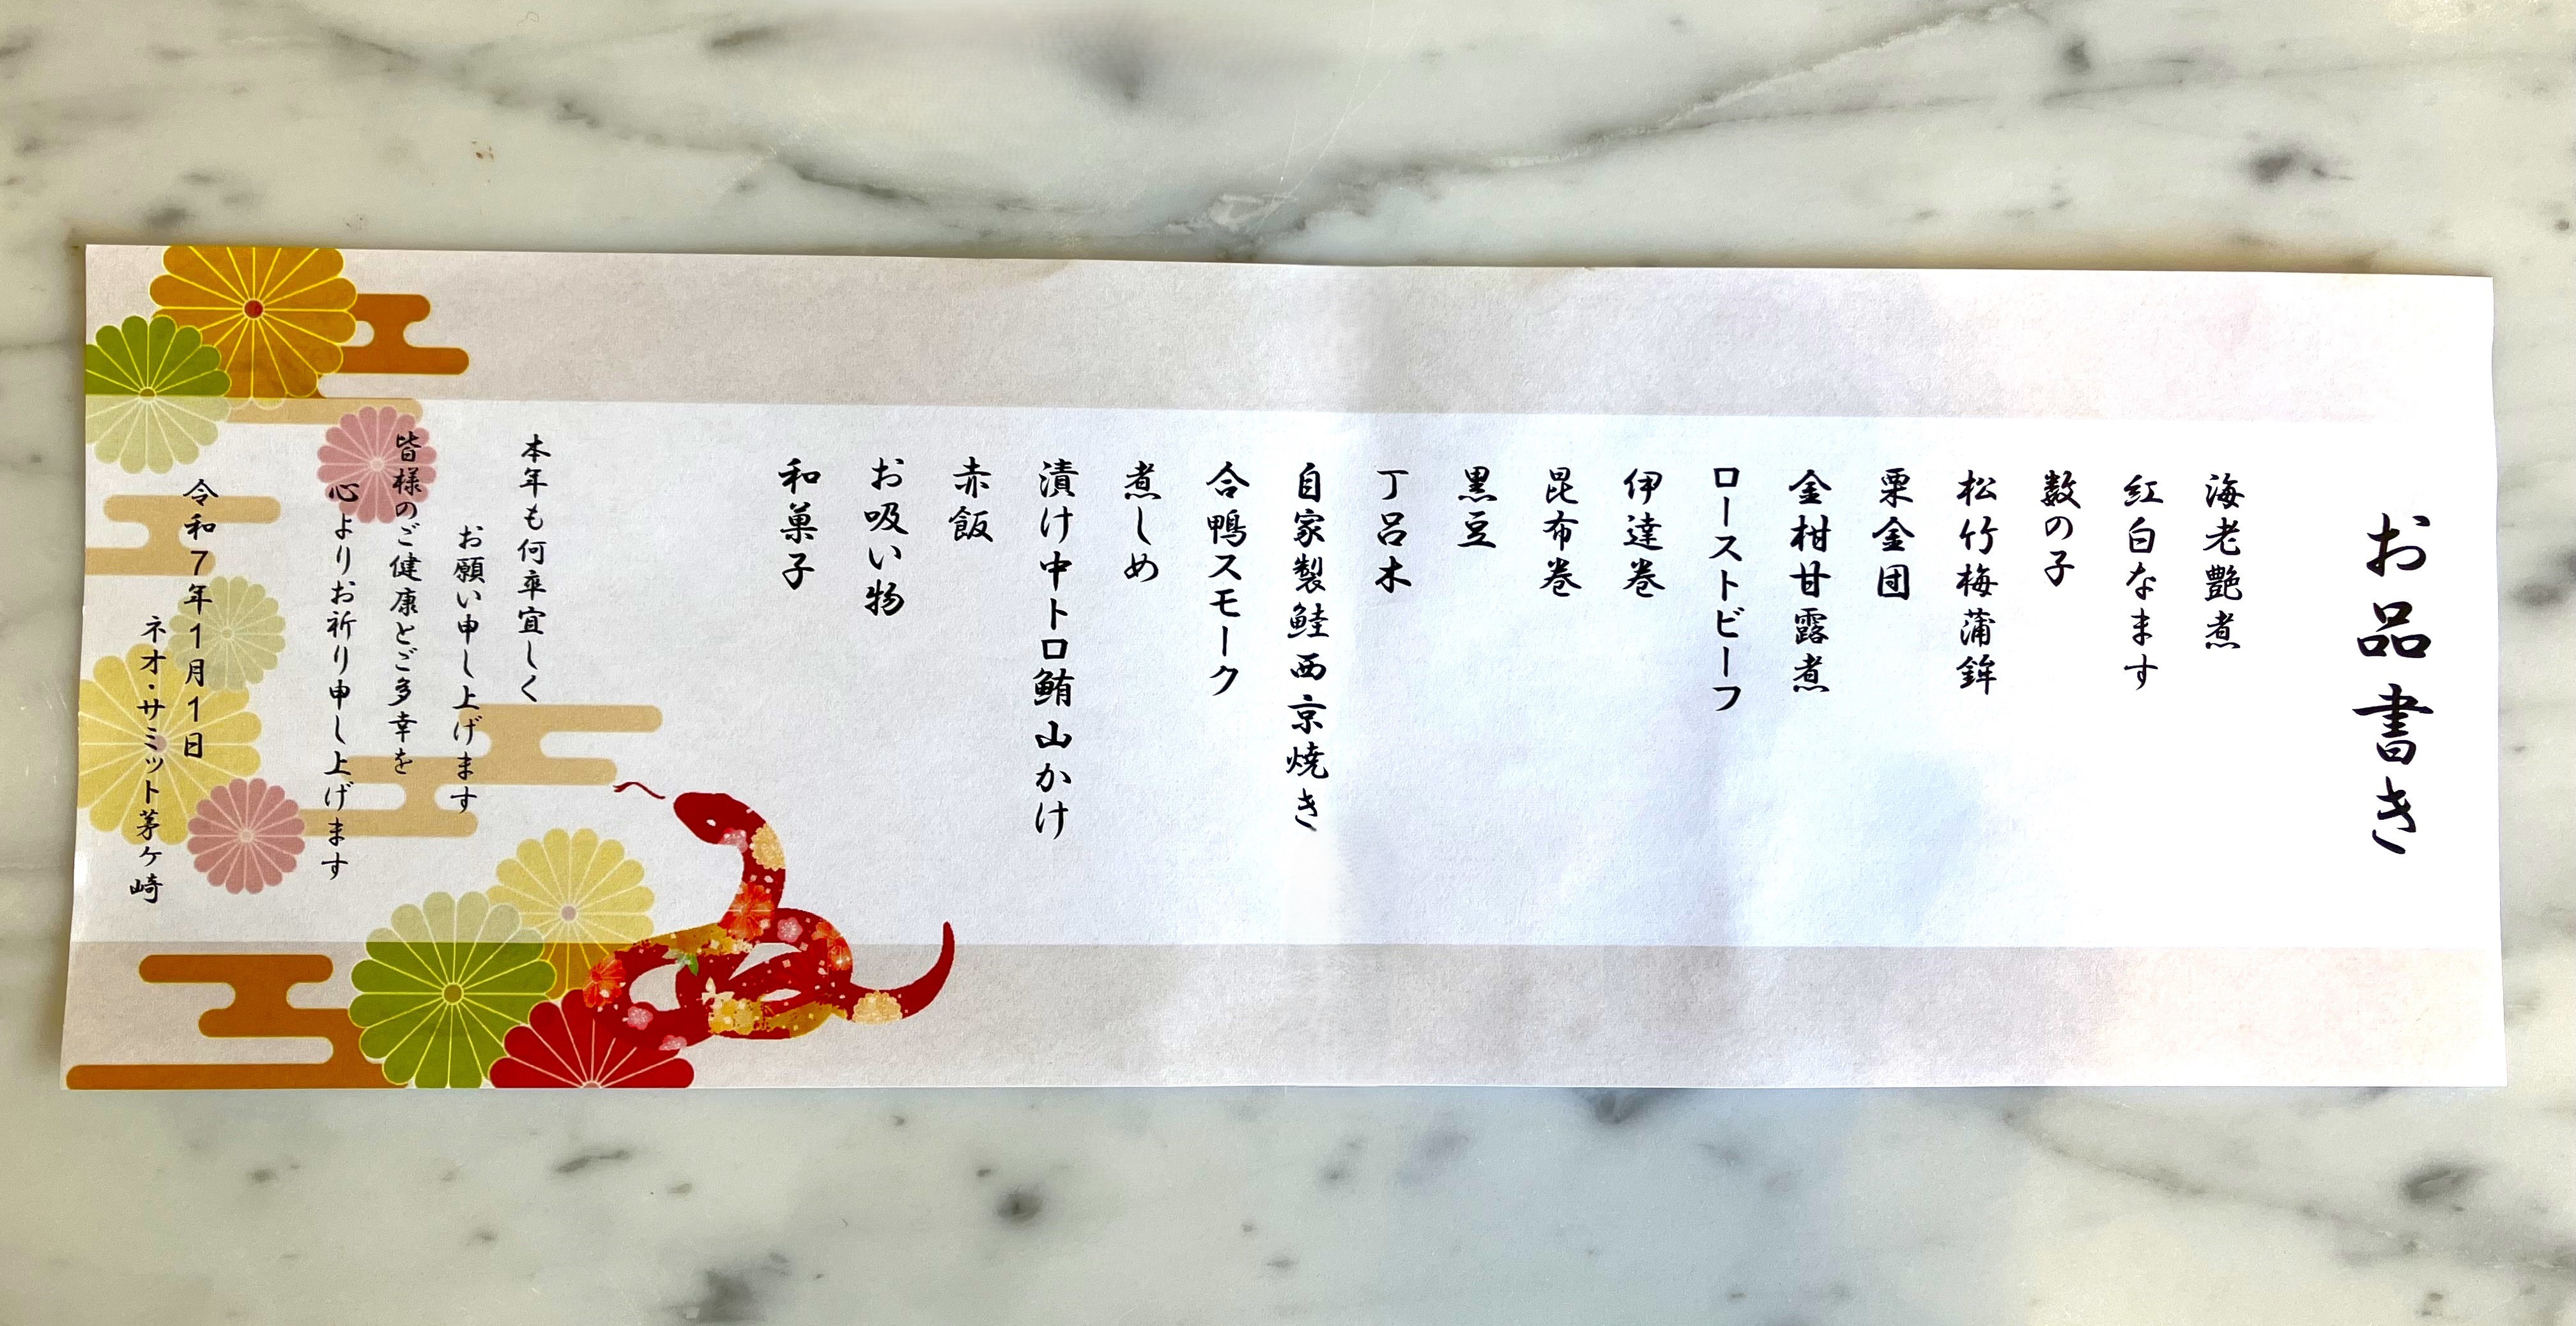 お品書き
海老艶煮
紅白なます
数の子
松竹梅蒲鉾
栗金団
金柑甘露煮
ローストビーフ
伊達巻
昆布巻
黒豆
丁呂木
自家製鮭西京焼き
合鴨スモーク
煮しめ
漬け中トロ鮪山かけ
赤飯
お吸い物
和菓子
本年も何卒宜しく
お願い申し上げます
皆様のご健康とご多幸を
心よりお祈り申し上げます
令和7年1月1日
ネオ・サミット茅ケ崎